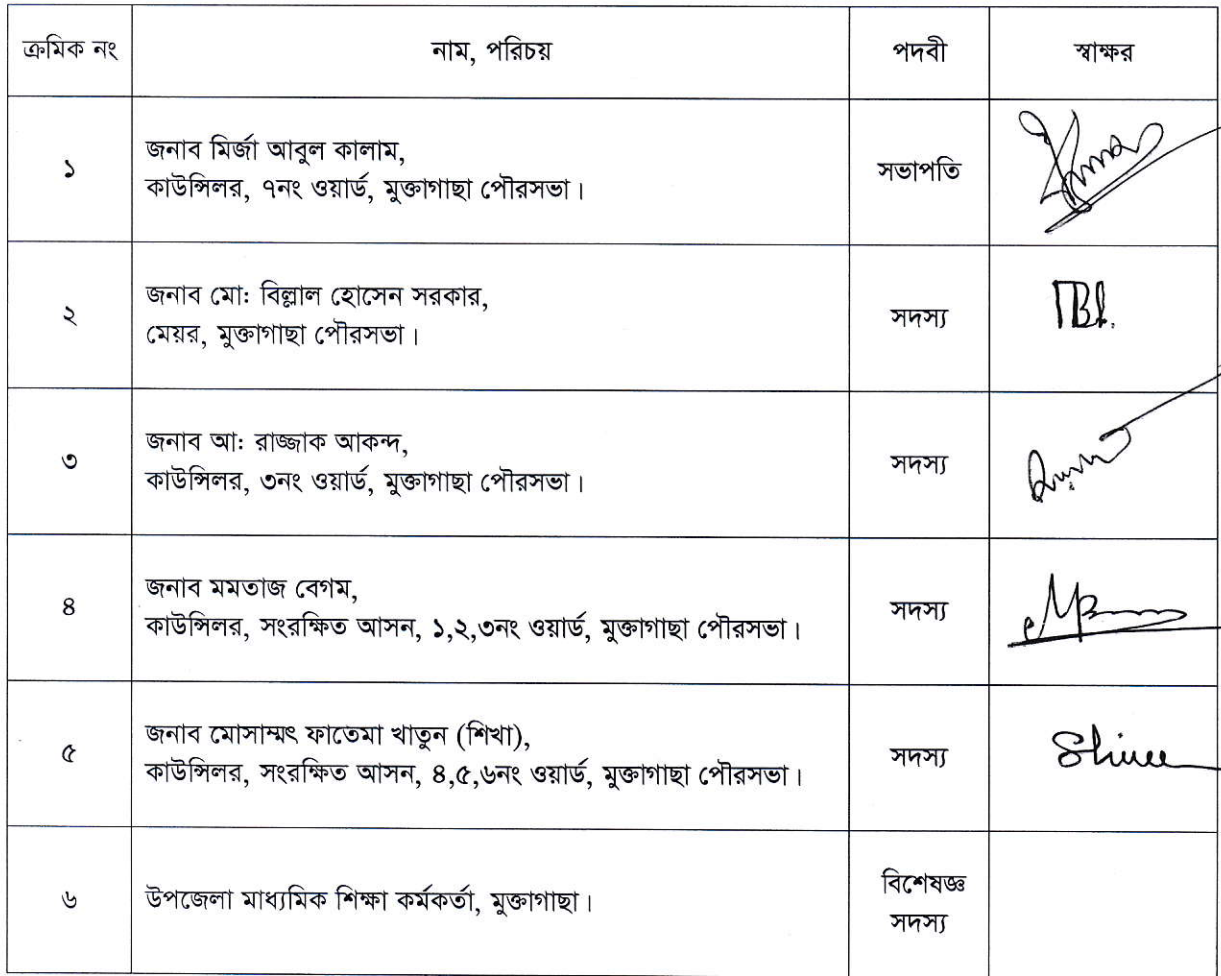 ক্রমিক নং নাম, পরিচয় পদবী স্বাক্ষর
১ জনাব মির্জা আবুল কালাম,
কাউন্সিলর, ৭নং ওয়ার্ড, মুক্তাগাছা পৌরসভা। সভাপতি
২ জনাব মো: বিল্লাল হোসেন সরকার,
মেয়র, মুক্তাগাছা পৌরসভা। সদস্য
৩ জনাব আ: রাজ্জাক আকন্দ,
কাউন্সিলর, ৩নং ওয়ার্ড, মুক্তাগাছা পৌরসভা। সদস্য
৪ জনাব মমতাজ বেগম,
কাউন্সিলর, সংরক্ষিত আসন, ১,২,৩নং ওয়ার্ড, মুক্তাগাছা পৌরসভা। সদস্য
৫ জনাব মোসাম্মৎ ফাতেমা খাতুন (শিখা),
কাউন্সিলর, সংরক্ষিত আসন, ৪,৫,৬নং ওয়ার্ড, মুক্তাগাছা পৌরসভা। সদস্য
৬ উপজেলা মাধ্যমিক শিক্ষা কর্মকর্তা, মুক্তাগাছা। বিশেষজ্ঞ
সদস্য